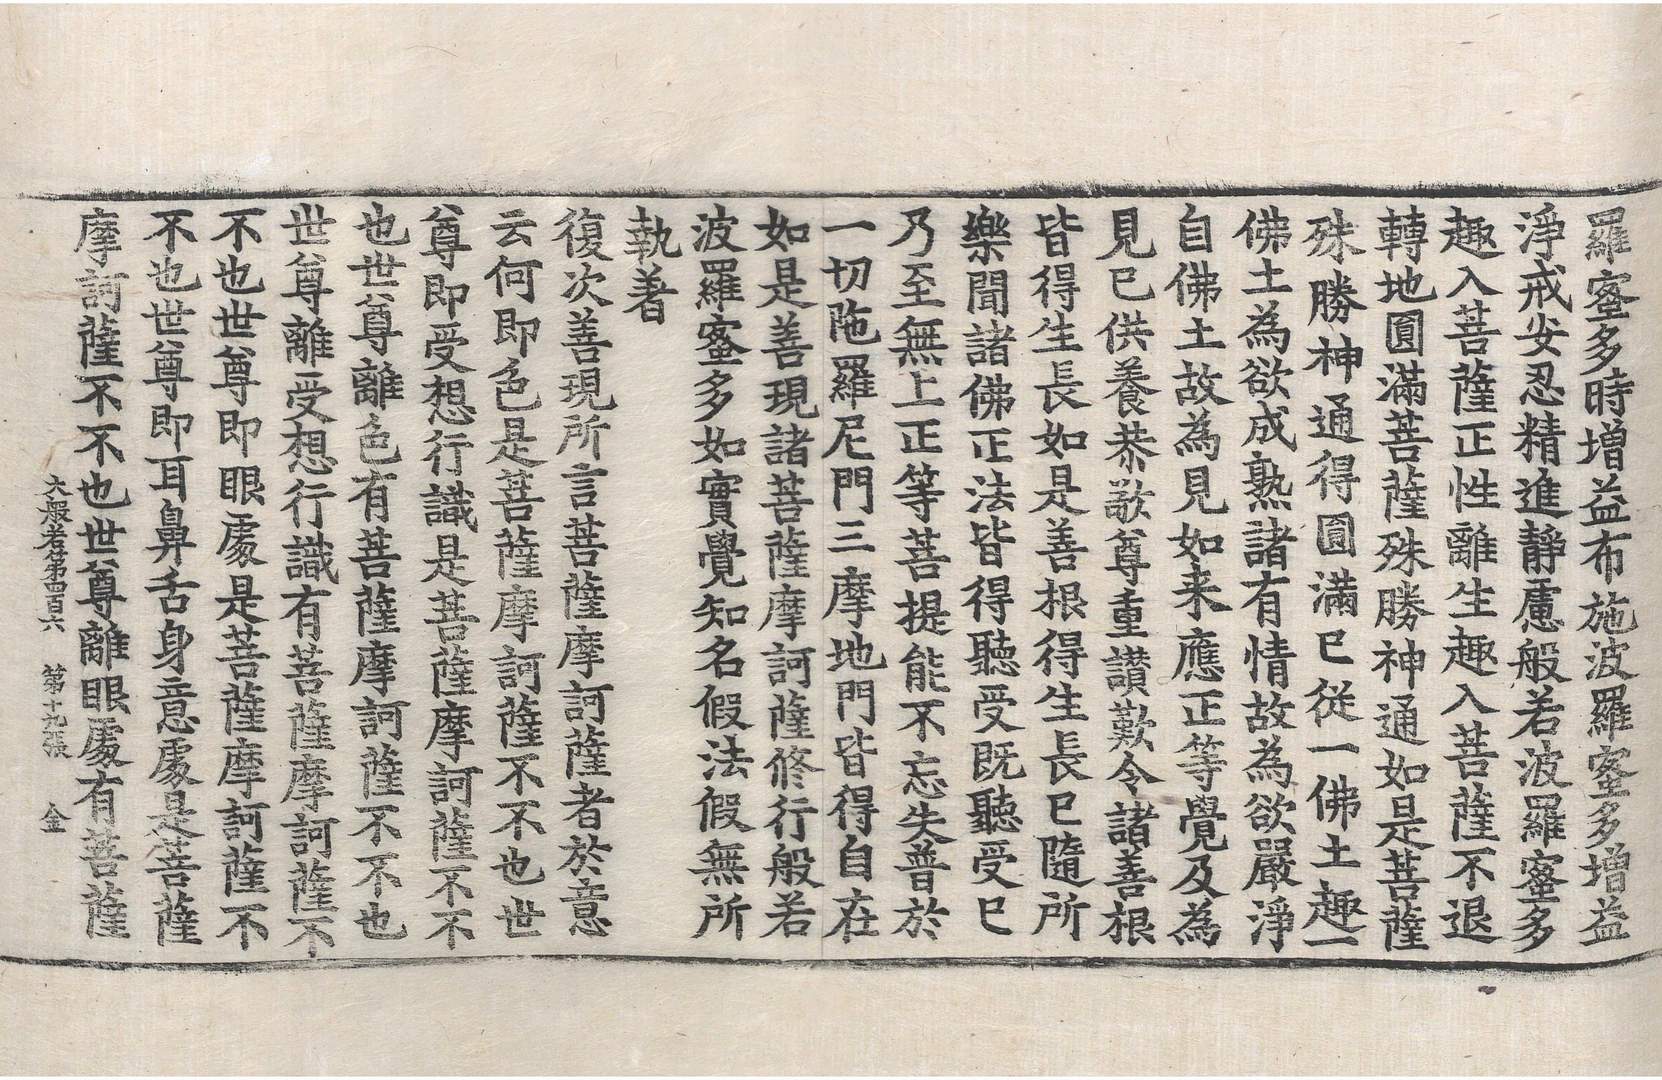 羅蜜多時增益布施波羅蜜多增益
淨戒安忍精進靜慮般若波羅蜜多
趣入菩薩正性離生趣入菩薩不退
轉地圓滿菩薩殊勝神通如是菩薩
殊勝神通得圓滿已從一佛土趣一
佛土為欲成熟諸有情故為欲嚴淨
自佛土故為見如来應正等覺及為
見已供養恭敬尊重讃歎令諸善根
皆得生長如是善根得生長已隨所
樂聞諸佛正法皆得聽受既聽受已
乃至無上正等菩提能不忘失普於
一切陁羅尼門三摩地門皆得自在
如是善現諸菩薩摩訶薩修行般若
波羅蜜多如實覺知名假法假無所
執著
復次善現所言菩薩摩訶薩者於意
云何即色是菩薩摩訶薩不不也世
尊即受想行識是菩薩摩訶薩不不
也世尊離色有菩薩摩訶薩不不也
世尊離受想行識有菩薩摩訶薩不
不也世尊即眼處是菩薩摩訶薩不
不也世尊即耳鼻舌身意處是菩薩
摩訶薩不不也世尊離眼處有菩薩
大般若第四百六 第十九張 金